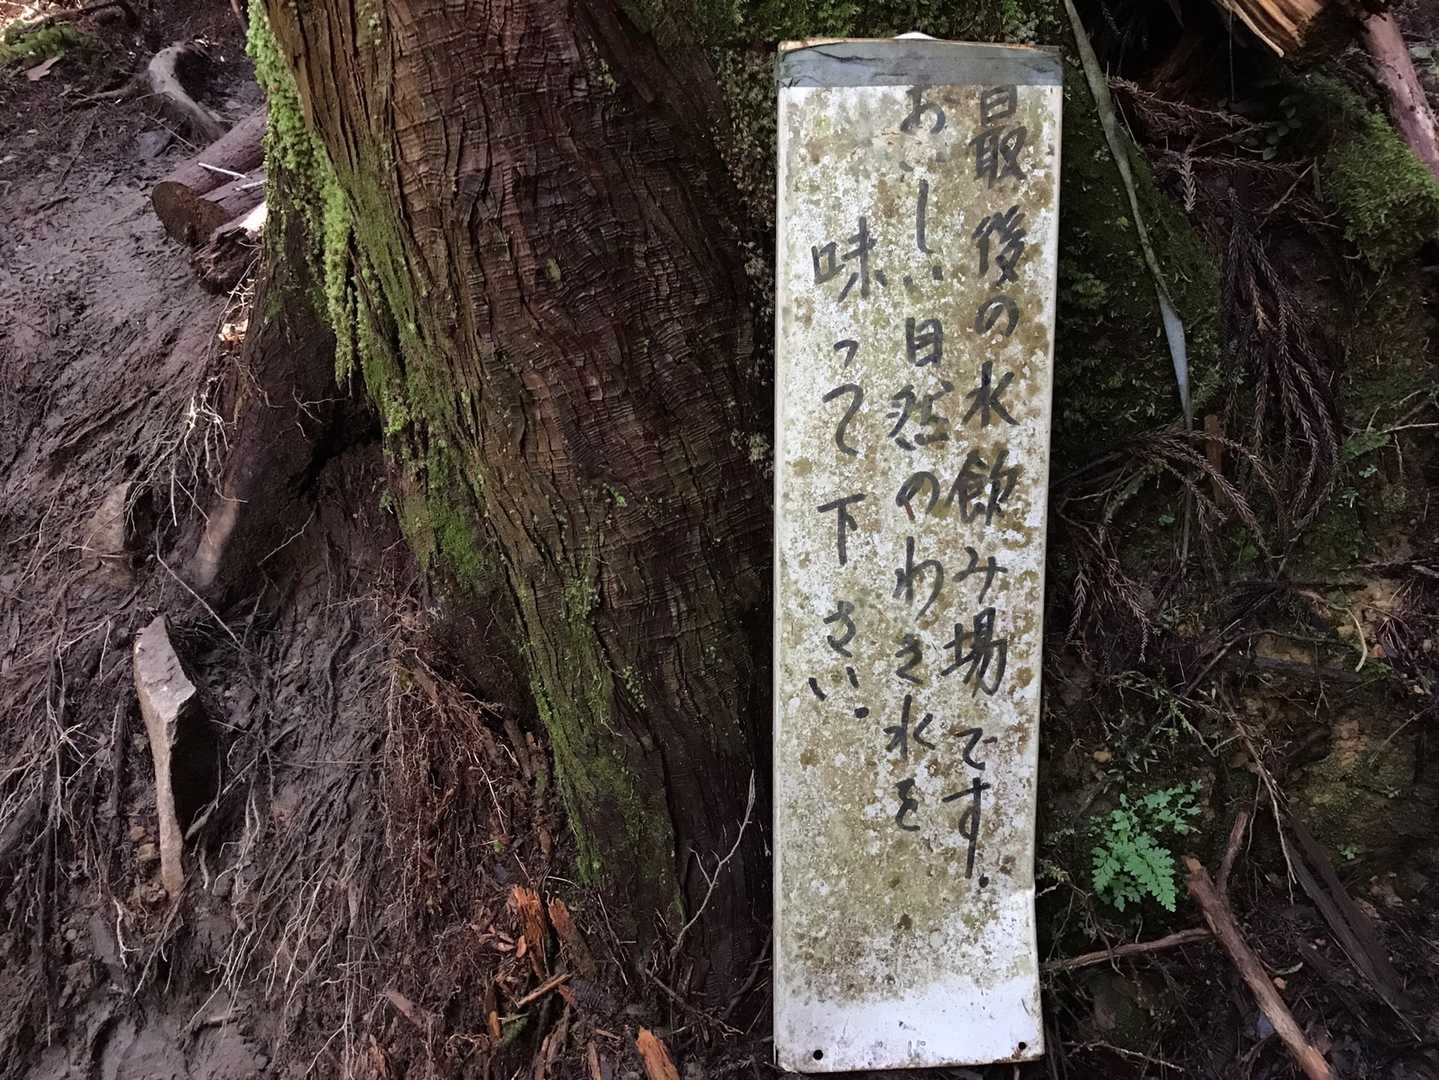 最後の水飲み場です.
おいしい自然のわき水を
味って下さい.